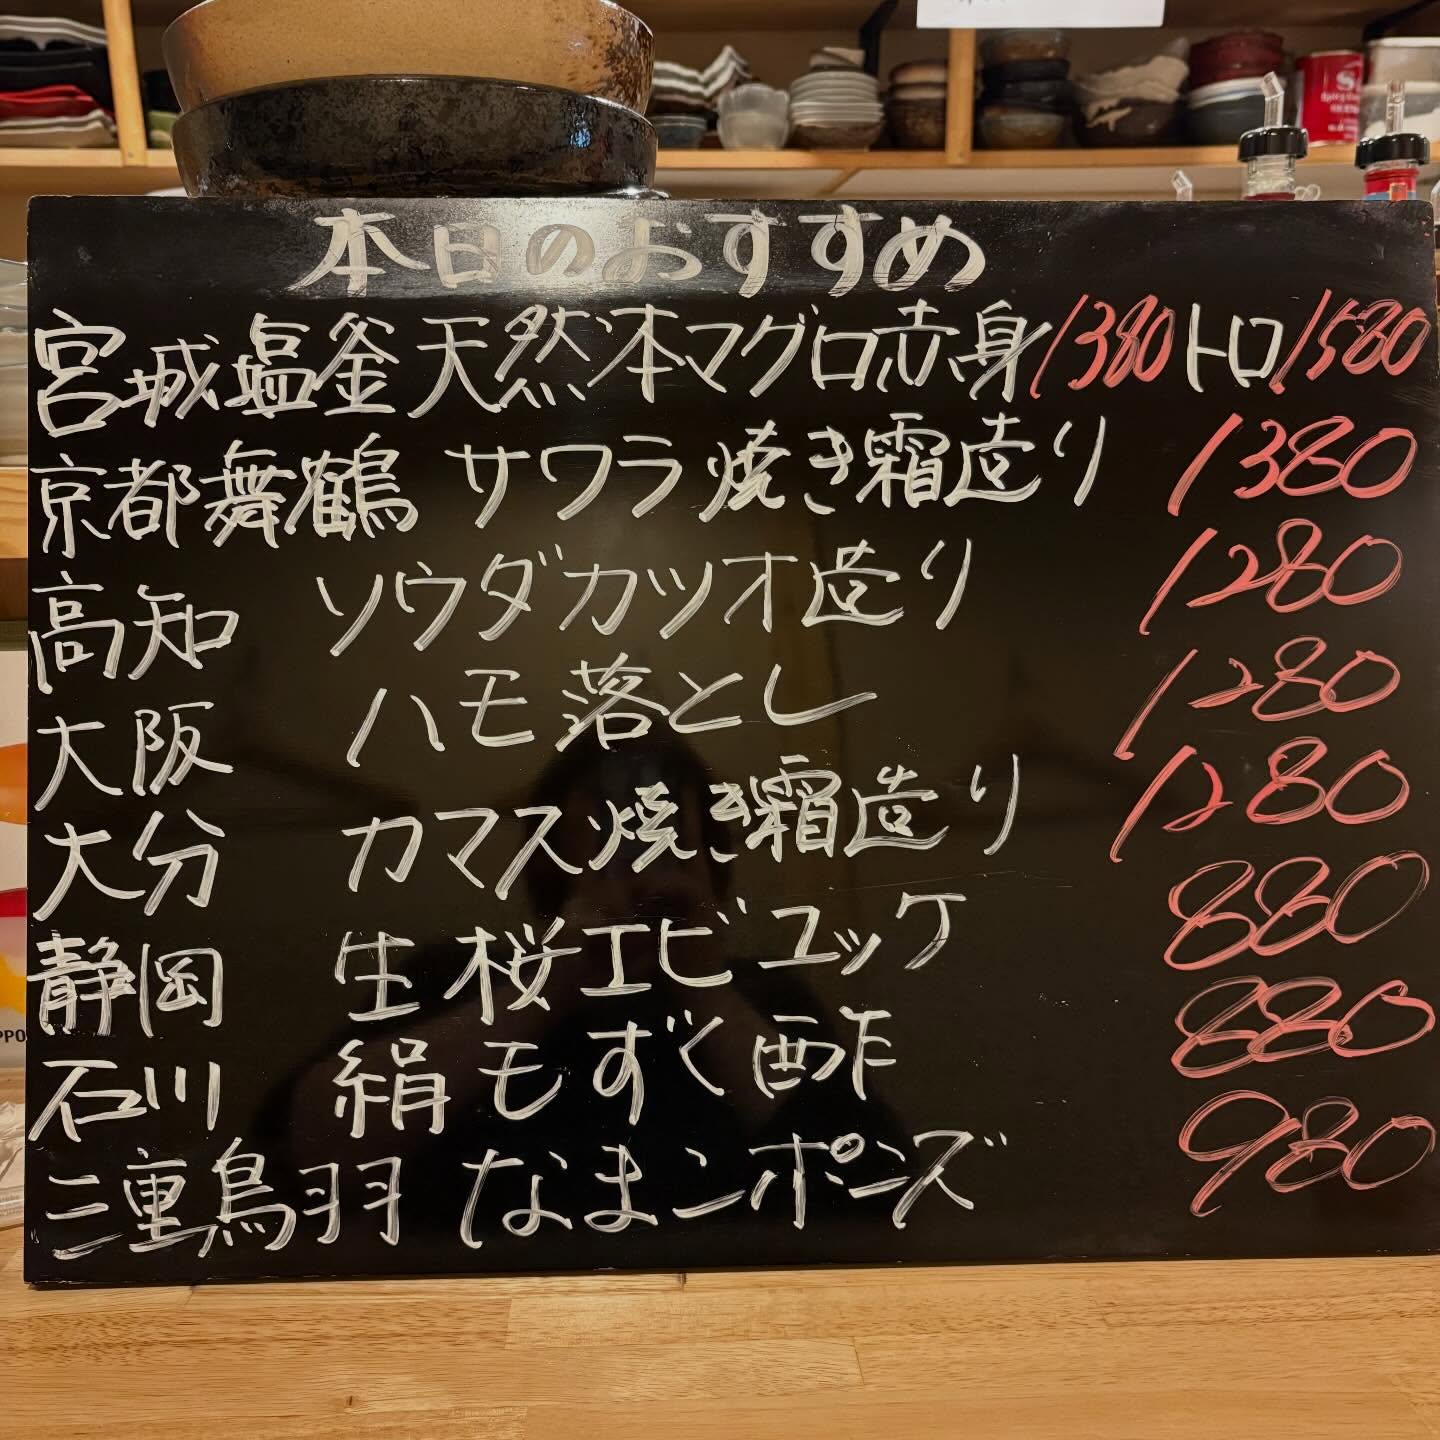 本日のおすすめ
宮城塩釜 天然本マグロ赤身1380 トロ1580
京都舞鶴 サワラ焼き霜造り 1380
高知 ソウダカツオ造り 1280
大阪 ハモ落とし 1280
大分 カマス焼き霜造り 1280
静岡 生桜エビユッケ 880
石川 絹モずく酢 880
三重鳥羽 なまこポン酢 980